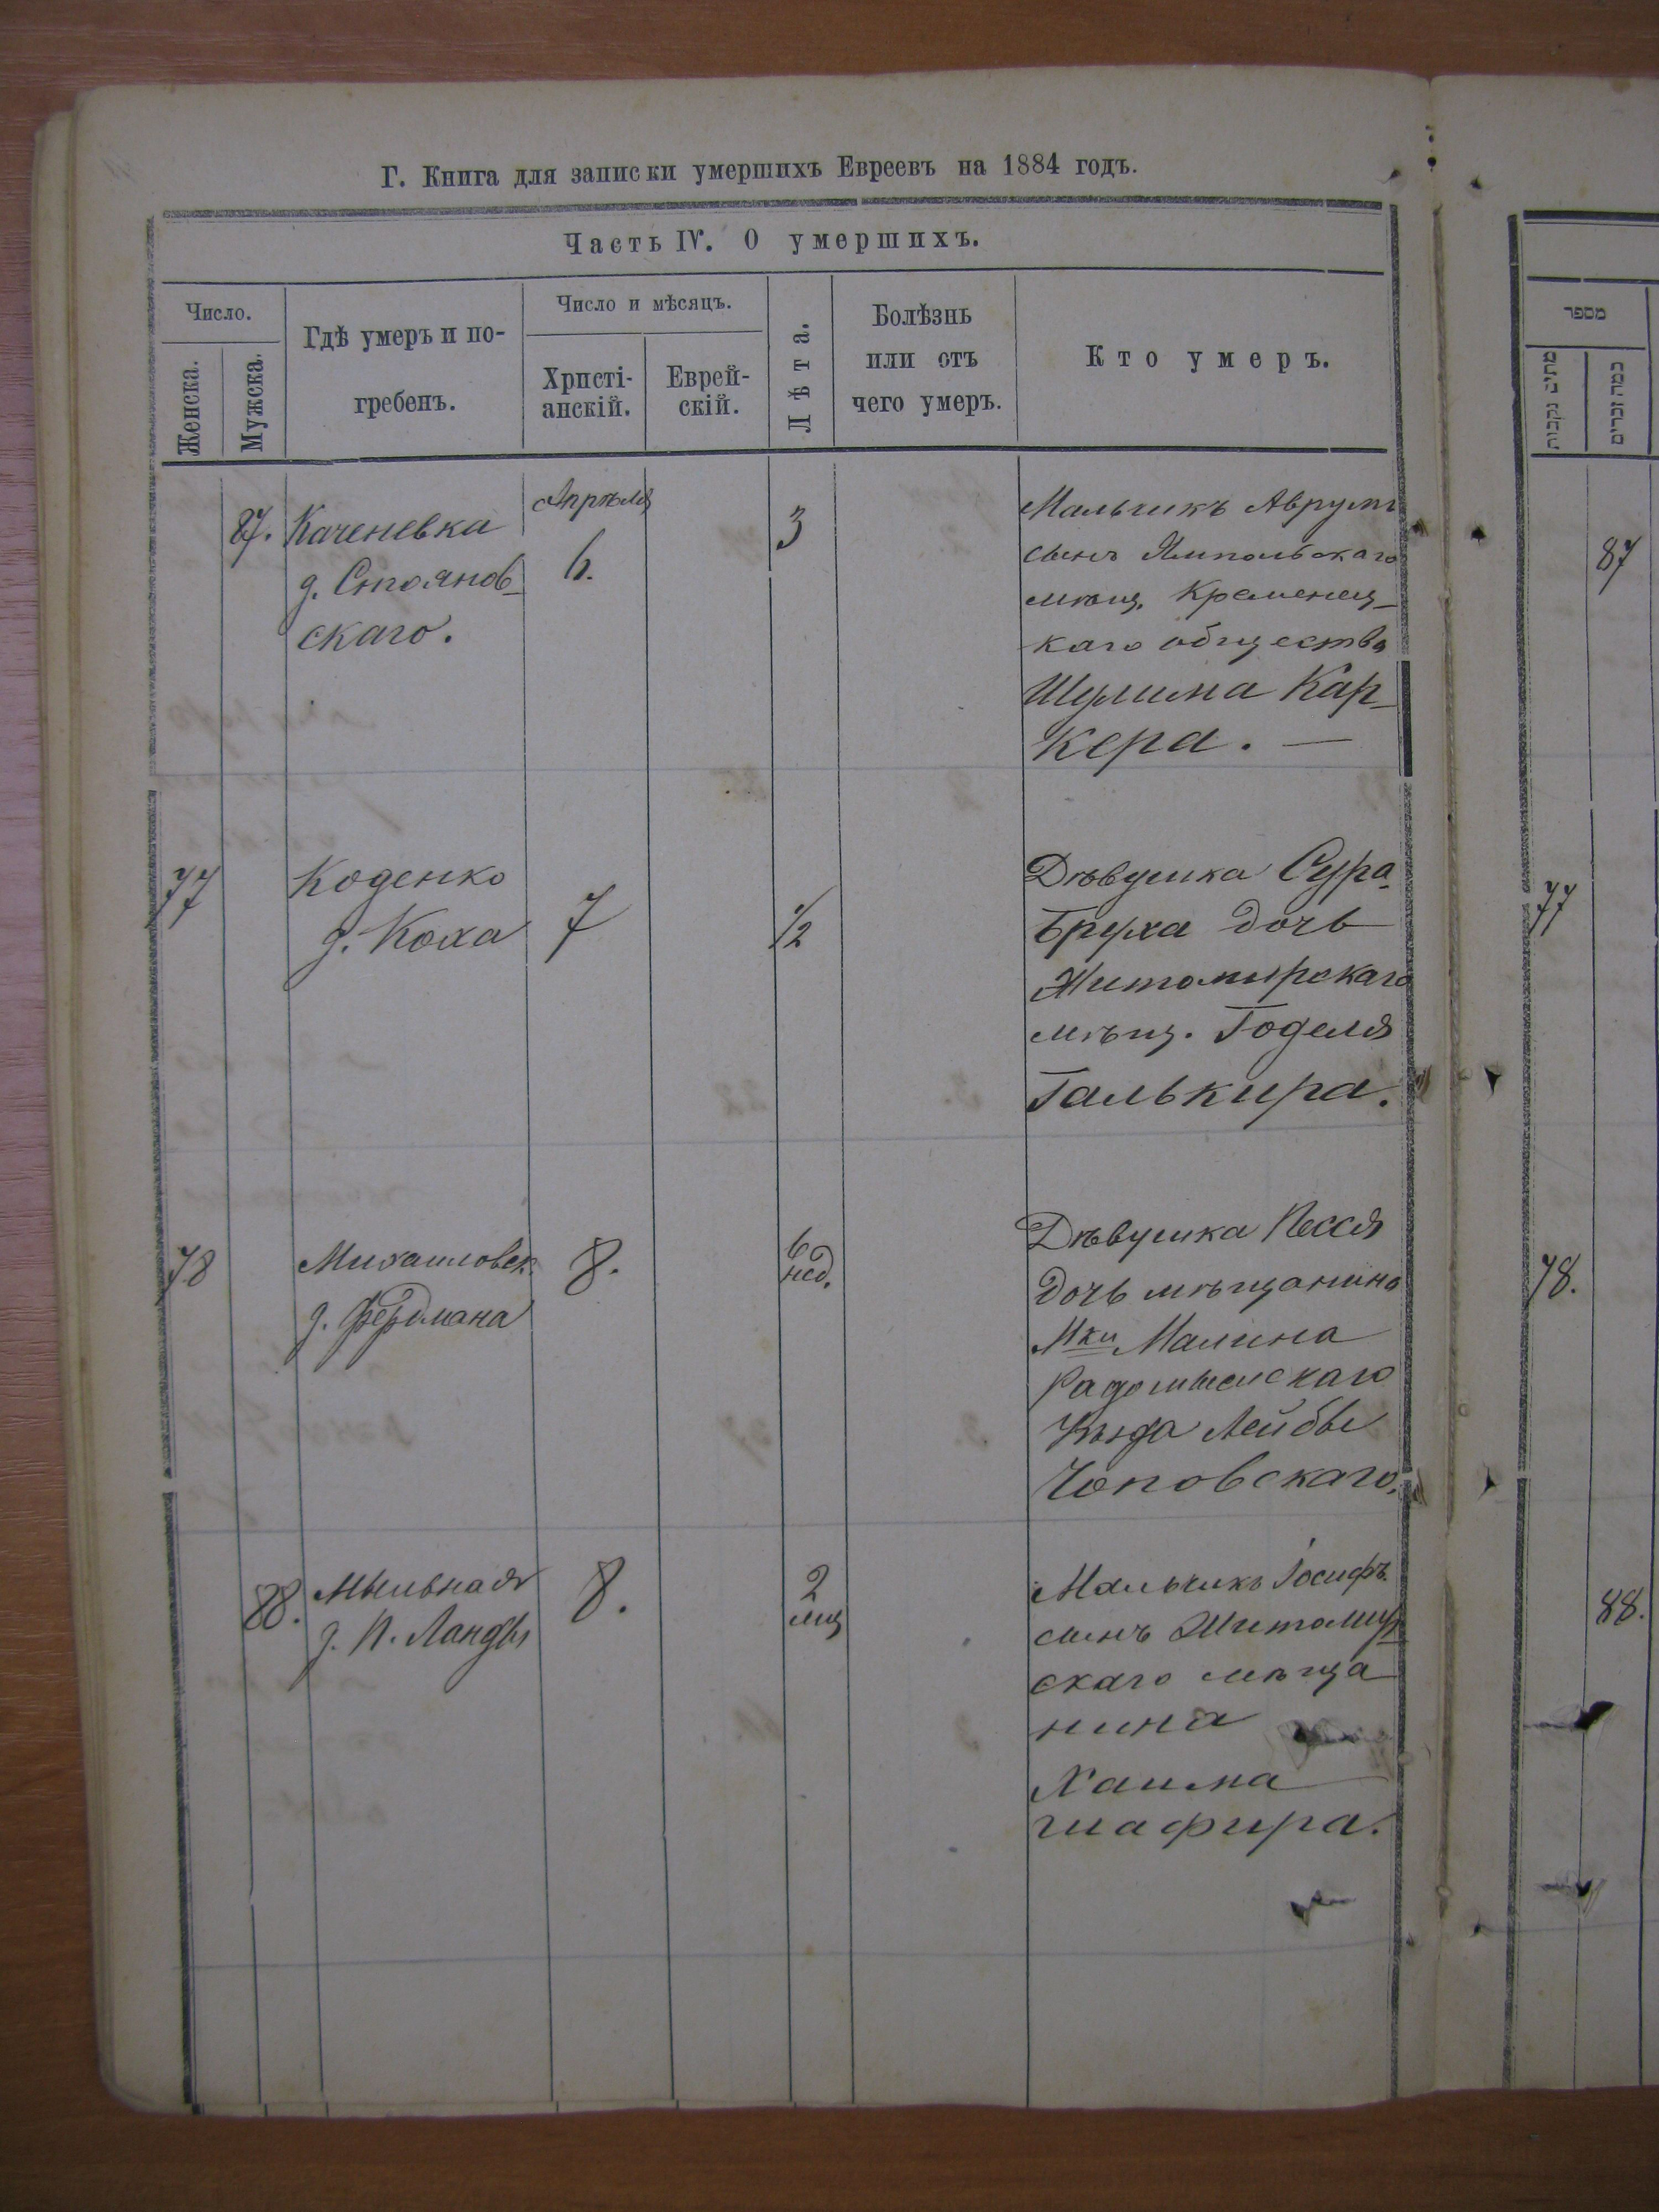 Г. Книга для записки умершихъ Евреевъ на 1884 годъ.
Часть IV. О умершихъ.
Число.
Женска.
Мужска.
Гдѣ умеръ и по-
гребенъ.
Число и мѣсяцъ.
Христі-
анскій.
Еврей-
скій.
Лѣта.
Болѣзнь
или отъ
чего умеръ.
Кто умеръ.
87.
Каченевка
д. Стоянов-
скаго.
Апрѣля
6.
3
Мальчикъ Аврумъ
сынъ Ямпольскаго
мѣщ. Кременец-
каго общества
Шулима Кар-
кера. —
77
Коденко
д. Коха
7
1/2
Дѣвушка Сура-
Бруха дочь
Житомирскаго
мѣщ. Годеля
Галькира.
78
Михайловск.
д. Фердмана
8.
6
нед.
Дѣвушка Песся
дочь мѣщанина
Мки Малина
Радомысльскаго
уѣзда Лейбы
Чоповскаго.
88.
Мыльная
д. П. Ланды
8.
2
мц
Мальчикъ Іосифъ
сынъ Житомир-
скаго мѣща
нина
Хаима
шафира.
מספר
מתים נקבות
כמה זכרים
87
77
78.
88.